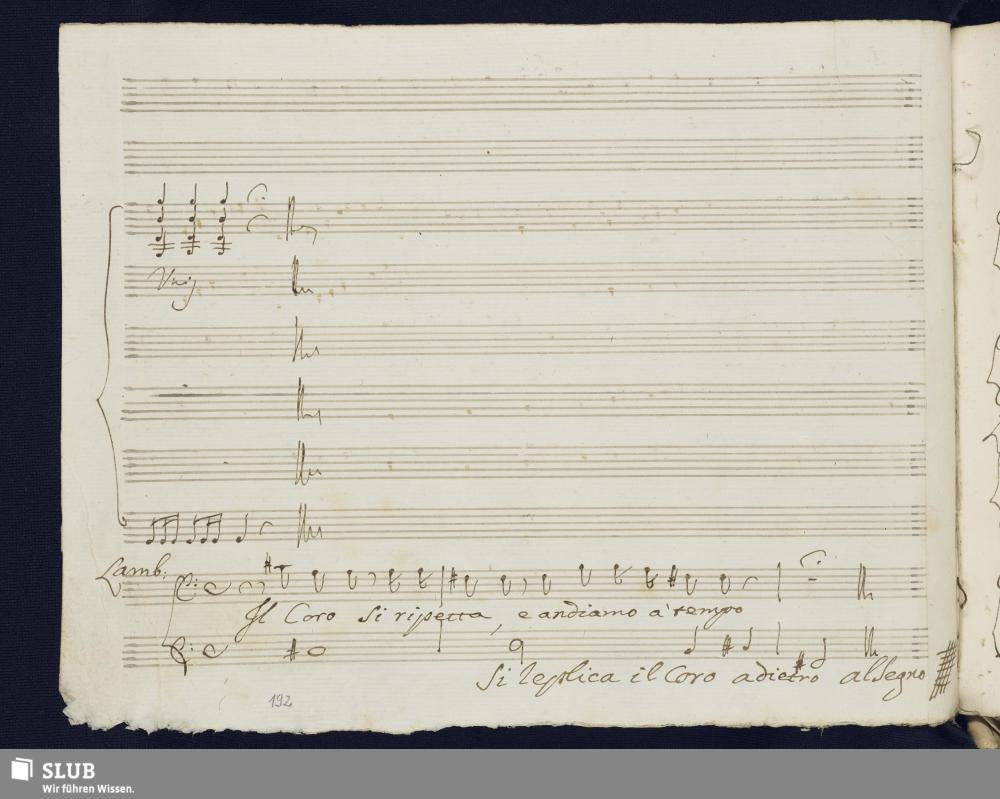 Unij
Lamb:
Il Coro si ripetta, e andiamo a' tempo
Si replica il Coro adietro al Segno
192
SLUB
Wir führen Wissen.